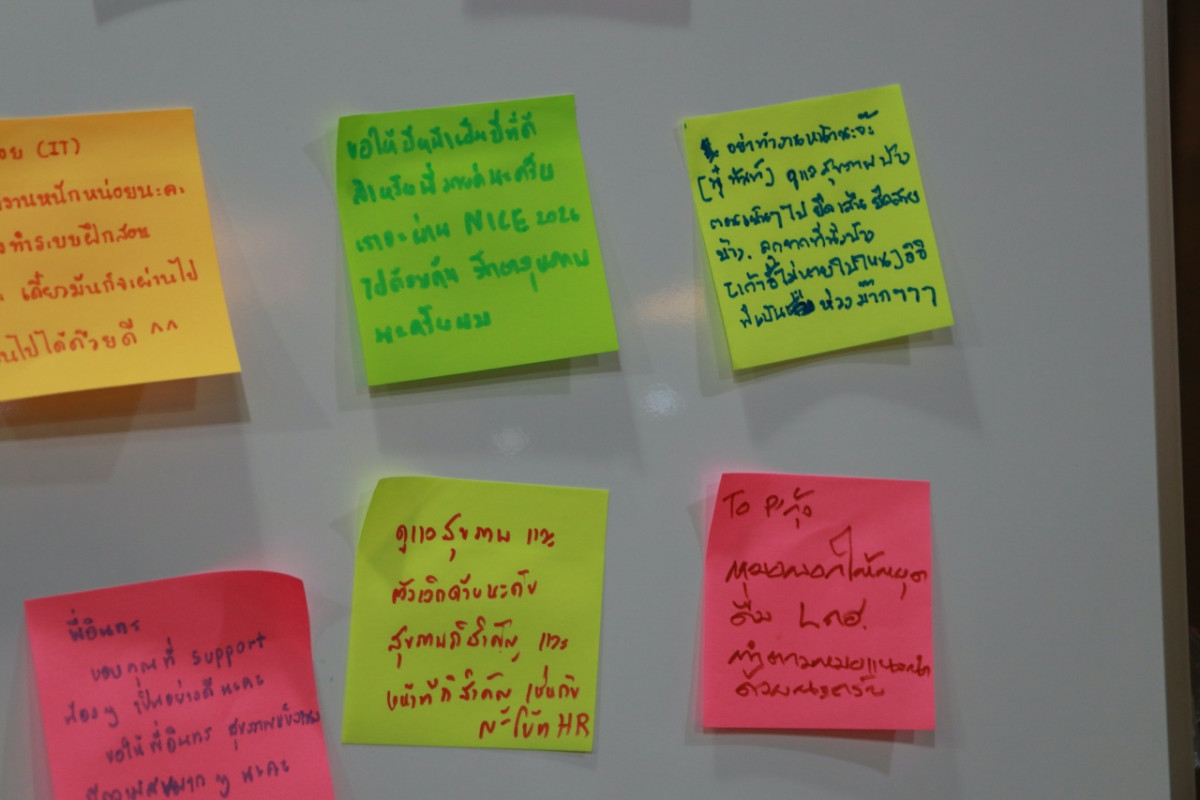 อย (IT)
งานหนักหน่อยนะคะ
ทำระบบฝึกสอน
เดี๋ยวมันก็จะผ่านไป
นไปได้ด้วยดี ^^
ขอให้ปีหน้าเป็นปีที่ดี
สำหรับพี่ นะครับ
เราจะผ่าน NICE 2026
ไปด้วยกัน รักษาสุขภาพ
นะครับผม
อย่าทำงานหนักนะจ๊ะ
ดูแลสุขภาพบ้าง
ไป ยืดเส้น ยืดสาย
บ้าง. ลุกจากที่นั่งบ้าง
เก้าอี้ไม่หายไปไหน อิอิ
พี่เป็น ห่วงม๊ากๆๆๆ
ดูแลสุขภาพ และ
ตัวเองด้วยนะครับ
สุขภาพก็สำคัญ และ
หน้าที่ก็สำคัญ เช่นกัน
HR
To P'กุ้ง
หมอบอกให้หยุด
ดื่ม
ทำตามหมอแนะนำ
ด้วยนะครับ
พี่อินทร
ขอบคุณที่ support
น้องๆ เป็นอย่างดีนะคะ
ขอให้พี่อินทร สุขภาพแข็งแรง
มากๆ นะคะ